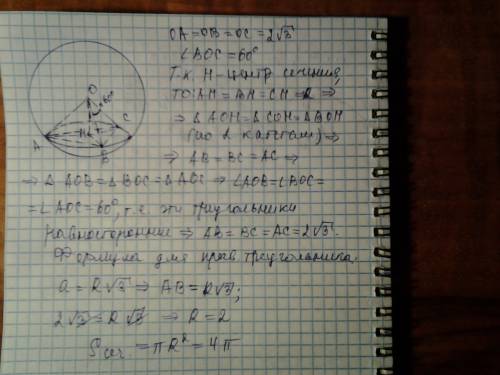 OA=OB=OC=2√3
∠BOC=60°
Т.к. H-центр сечения,
то: AH=BH=CH=R ⇒
⇒ △AOH=△COH=△BOH
(по 2 катетам) ⇒
⇒ AB=BC=AC ⇒
⇒ △AOB=△BOC=△AOC ⇒ ∠AOB=∠BOC=
=∠AOC=60°, т.е. эти треугольники
равносторонние ⇒ AB=BC=AC=2√3.
Формула для прав. треугольника
a=R√3 ⇒ AB=R√3;
2√3=R√3 ⇒ R=2
S сеч =πR²=4π
O
60°
A
H
C
B